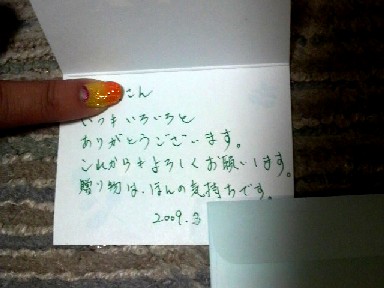 さん
いつもいろいろと
ありがとうございます。
これからもよろしくお願いします。
贈り物は、ほんの気持ちです。
2009.3